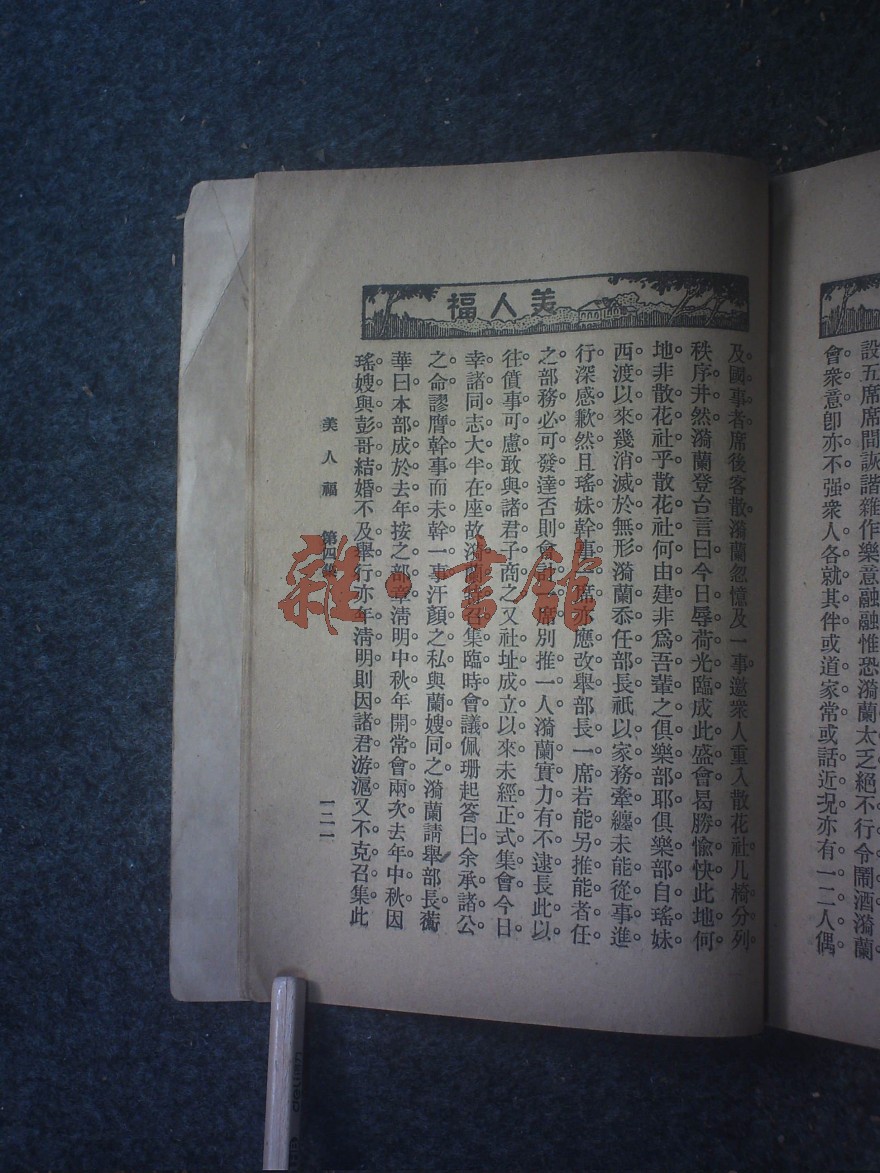 設五席席間詼諧雜作樂意融融惟恐漪蘭太乏絕不行令鬧酒漪蘭
會衆意卽亦不强衆人各就其伴或道家常或話近況亦有一二人偶
福人美
及國事者席後客散漪蘭忽憶及一事邀衆人重入散花社几椅分列
秩序井然漪蘭登台言曰今日辱荷光臨成此盛會曷勝愉快此地何
地非散花社乎散花社何由建非爲吾輩之俱樂部耶俱樂部自瑤妹
西渡以來幾消滅於無形漪蘭忝任部長祇以家務牽纏未能從事進
行深感歉然且瑤妹幹事一席亦應改舉部長一席若能另推能者任
之部務必可發達否則會計一席別推一人漪蘭實力有不逮長此以
往僨事可慮敢與諸君子商之又社址成立以來未經正式集會今日
幸諸同志大半在座故漪蘭召集臨時會議佩珊起答曰余承諸公
之命謬膺幹事而未幹一事汗顏之私與蘭嫂同之漪蘭請舉部長蘅
華曰本部成於去年按之部章清明中秋年開常會兩次去年中秋因
瑤嫂與彭哥結婚不及舉行亦年清明則因諸君游滬又不克召集此
美人福 第四集
一二一
雜·書館